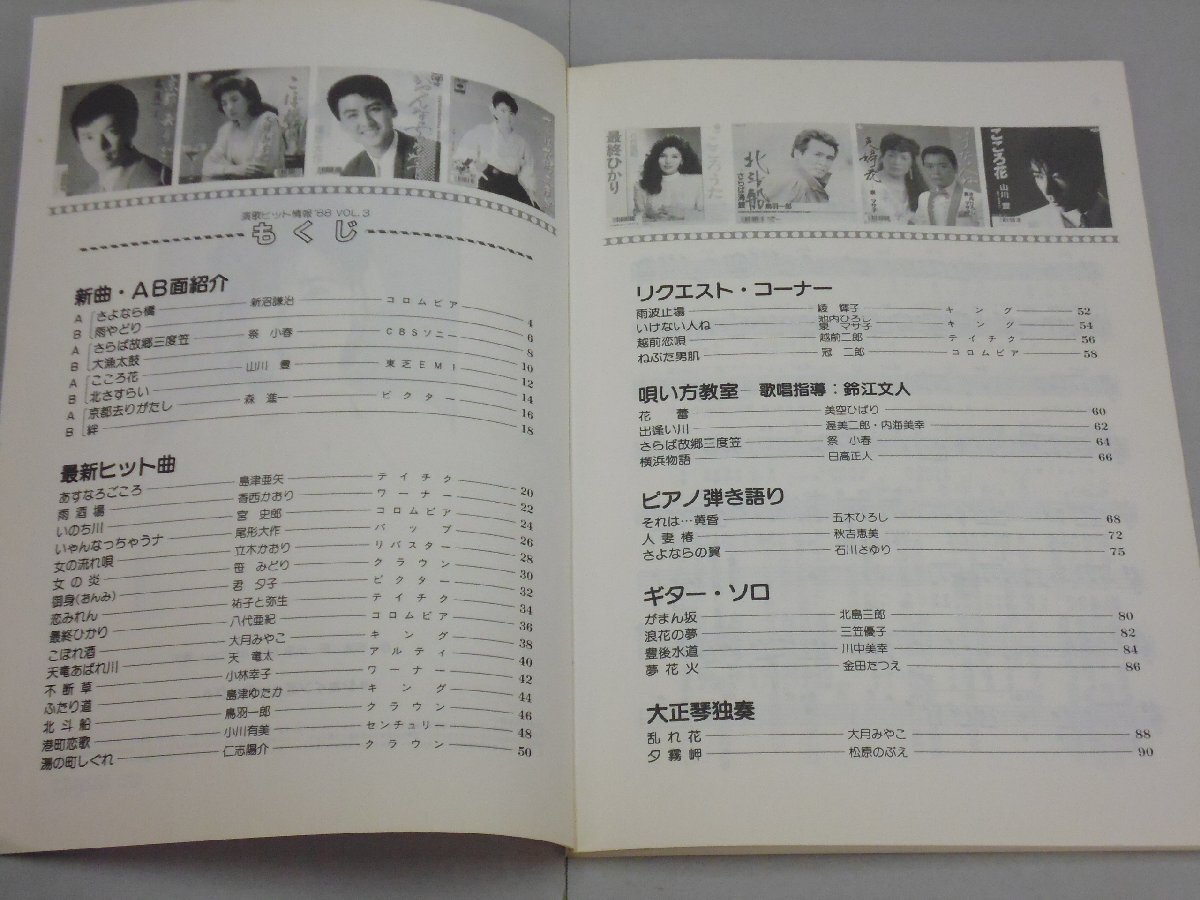 演歌ヒット情報'88 VOL.3
もくじ
新曲・AB面紹介
A さよなら橋 新沼謙治 コロムビア 4
B 雨やどり 6
A さらば故郷三度笠 祭 小春 CBSソニー 8
B 大漁太鼓 10
A こころ花 山川 豊 東芝EMI 12
B 北さすらい 14
A 京都去りがたし 森 進一 ビクター 16
B 絆 18
最新ヒット曲
あすなろごころ 島津亜矢 テイチク 20
雨酒場 香西かおり ワーナー 22
いのち川 宮 史郎 コロムビア 24
いゃんなっちゃうナ 尾形大作 バップ 26
女の流れ唄 立木かおり リバスター 28
女の炎 笹 みどり クラウン 30
御身(おんみ) 君 夕子 ビクター 32
恋みれん 祐子と弥生 テイチク 34
最終ひかり 八代亜紀 コロムビア 36
こぼれ酒 大月みやこ キング 38
天竜あばれ川 天 竜太 アルティ 40
不断草 小林幸子 ワーナー 42
ふたり道 島津ゆたか キング 44
北斗船 鳥羽一郎 クラウン 46
港町恋歌 小川有美 センチュリー 48
湯の町しぐれ 仁志陽介 クラウン 50
最終ひかり
北斗船
鳥羽一郎
こころ花
山川 豊
リクエスト・コーナー
雨波止場 綾 輝子 キング 52
いけない人ね 池内ひろし 泉 マサ子 キング 54
越前恋唄 越前二郎 テイチク 56
ねぶた男肌 冠 二郎 コロムビア 58
唄い方教室 歌唱指導:鈴江文人
花蕾 美空ひばり 60
出逢い川 渥美二郎・内海美幸 62
さらば故郷三度笠 祭 小春 64
横浜物語 日高正人 66
ピアノ弾き語り
それは…黄昏 五木ひろし 68
人妻椿 秋吉恵美 72
さよならの翼 石川さゆり 75
ギター・ソロ
がまん坂 北島三郎 80
浪花の夢 三笠優子 82
豊後水道 川中美幸 84
夢花火 金田たつえ 86
大正琴独奏
乱れ花 大月みやこ 88
夕霧岬 松原のぶえ 90